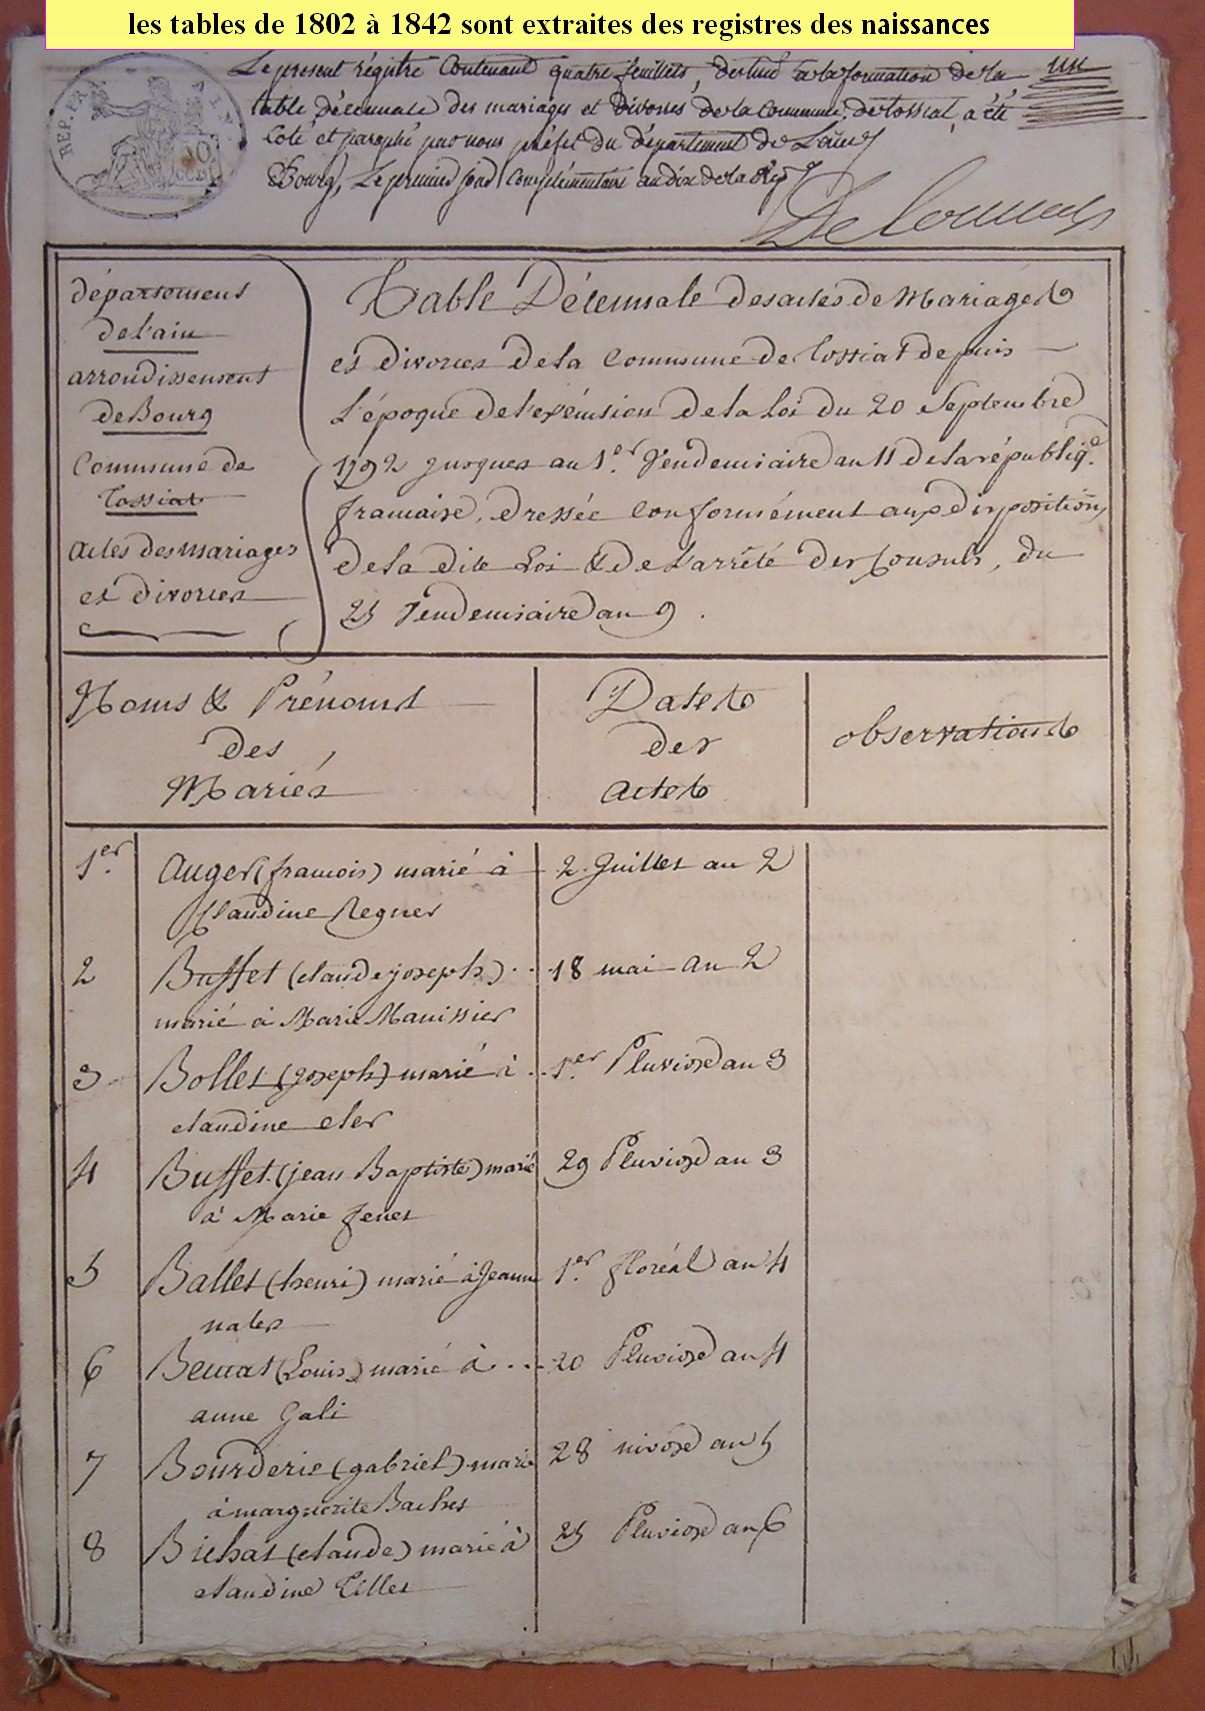 les tables de 1802 à 1842 sont extraites des registres des naissances
Le present régitre Contenant quatre feuillets, destiné à la formation de la
un
table décennale des mariages et divorces de la commune de tossiat, a été
coté et paraphé par nous préfet du département de L'ain
Bourg, Le premier jour Complémentaire an dix de la Rep
REP. FRA
département
de l'ain
arrondissement
de Bourg
Commune de
Tossiat
actes des mariages
et divorces
Table Décennale des actes de Mariages
et divorces de la Commune de Tossiat depuis
L'époque de l'exémsion de la Loi du 20 Septembre
1792 jusques au 1er Vendemiaire an 11 de la républiq.e
francaise, dressée conformément aux disposition
de la dite Loi & de L'arrêté des Consuls, du
25 Vendemiaire an 9.
Noms & Prénoms
des
Mariés
Dates
des
actes
observations
1er Auger (francois) marié à 2 Juillet an 2
Claudine Regner
2 Buffet (claude joseph) 18 mai an 2
marié à Marie Manissier
3 Bollet (joseph) marié à 1er Pluviose an 3
claudine
4 Buffet (jean Baptiste) marié 29 Pluviose an 3
à Marie
5 Ballet (henri) marié à Jeanne 1er floréal an 4
6 (Louis) marié à 20 Pluviose an 4
anne Gali
7 Bourderie (gabriel) marié 28 nivose an 5
à marguerite
8 Bichat (claude) marié à 25 Pluviose an 6
claudine